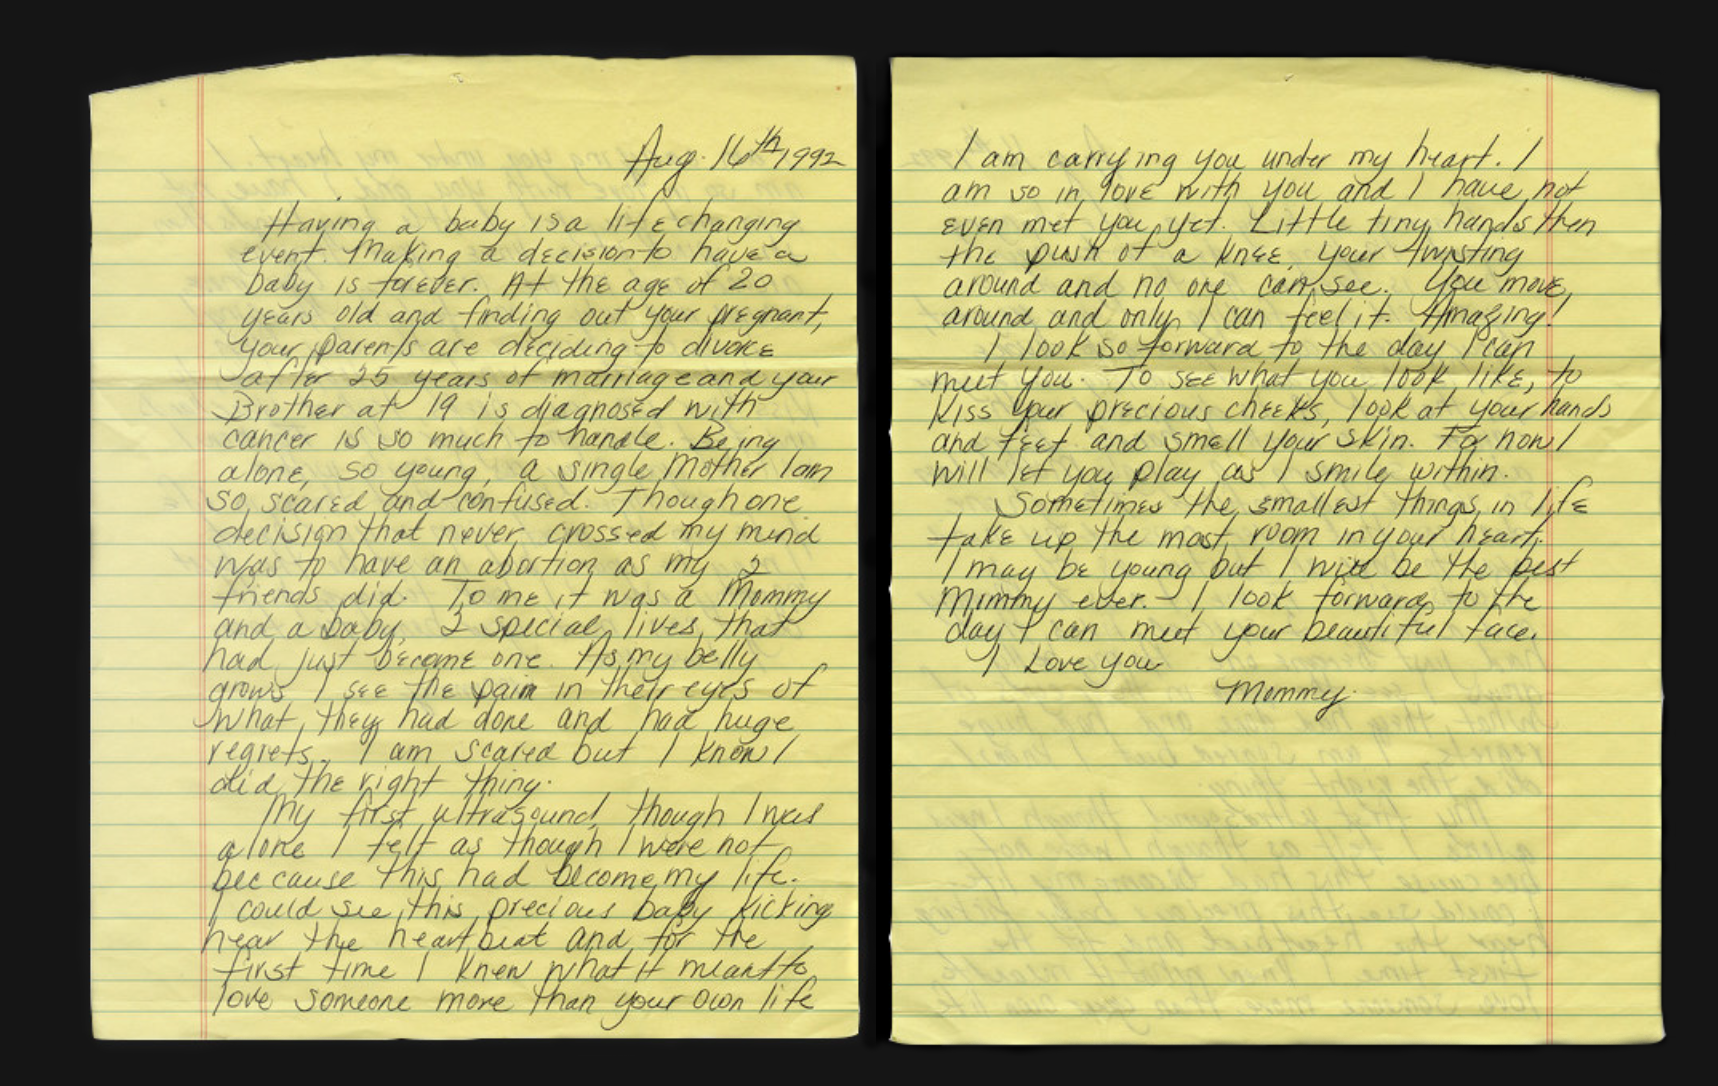 Aug. 16th, 1992
Having a baby is a life changing
event. Making a decision to have a
baby is forever. At the age of 20
years old and finding out your pregnant,
your parents are deciding to divorce
after 25 years of marriage and your
Brother at 19 is diagnosed with
cancer is so much to handle. Being
alone, so young, a single Mother I am
so scared and confused. Though one
decision that never crossed my mind
was to have an abortion as my 2
friends did. To me it was a Mommy
and a baby, 2 special lives that
had just become one. As my belly
grows I see the pain in their eyes of
what they had done and had huge
regrets. I am scared but I know I
did the right thing.
My first ultrasound, though I was
alone I felt as though I were not
beccause this had become my life.
I could see this precious baby kicking
hear the heartbeat and for the
first time I knew what it meant to
love someone more than your own life
I am carrying you under my heart. I
am so in love with you and I have not
even met you yet. Little tiny hands then
the push of a knee, your twisting
around and no one can see. You move
around and only I can feel it. Amazing!
I look so forward to the day I can
meet you. To see what you look like, to
kiss your precious cheeks, look at your hands
and feet and smell your skin. For now I
will let you play as I smile within.
Sometimes the smallest things in life
take up the most room in your heart.
I may be young but I will be the best
Mommy ever. I look forward to the
day I can meet your beautiful face.
I Love you
Mommy.